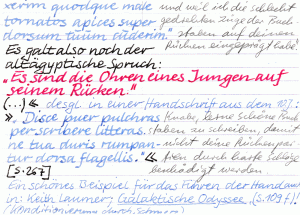 rerim quodque male
tornatos apices super
dorsum tuum cuderim."
und weil ich die schlecht
gedrechselten Züge des Buch-
staben auf deinen
Rücken eingeprägt habe!
Es galt also noch der
altägyptische Spruch:
„Es sind die Ohren eines Jungen auf
seinem Rücken."
(...) « desgl. in einer Handschrift aus dem 10J.:
» Disce puer pulchras
perscribere litteras.
ne tua duris rumpan-
tur dorsa flagellis."«
Knabe, lerne schöne Buch-
staben zu schreiben, damit
nicht deine Rückenpar-
tien durch harte Schläge
beschädigt werden.
[S. 267]
Ein schönes Beispiel für das Führen der Hand
in: Keith Laumer, Galaktische Odyssee, (S. 109 f.)
(Konditionierung durch Schmerz)